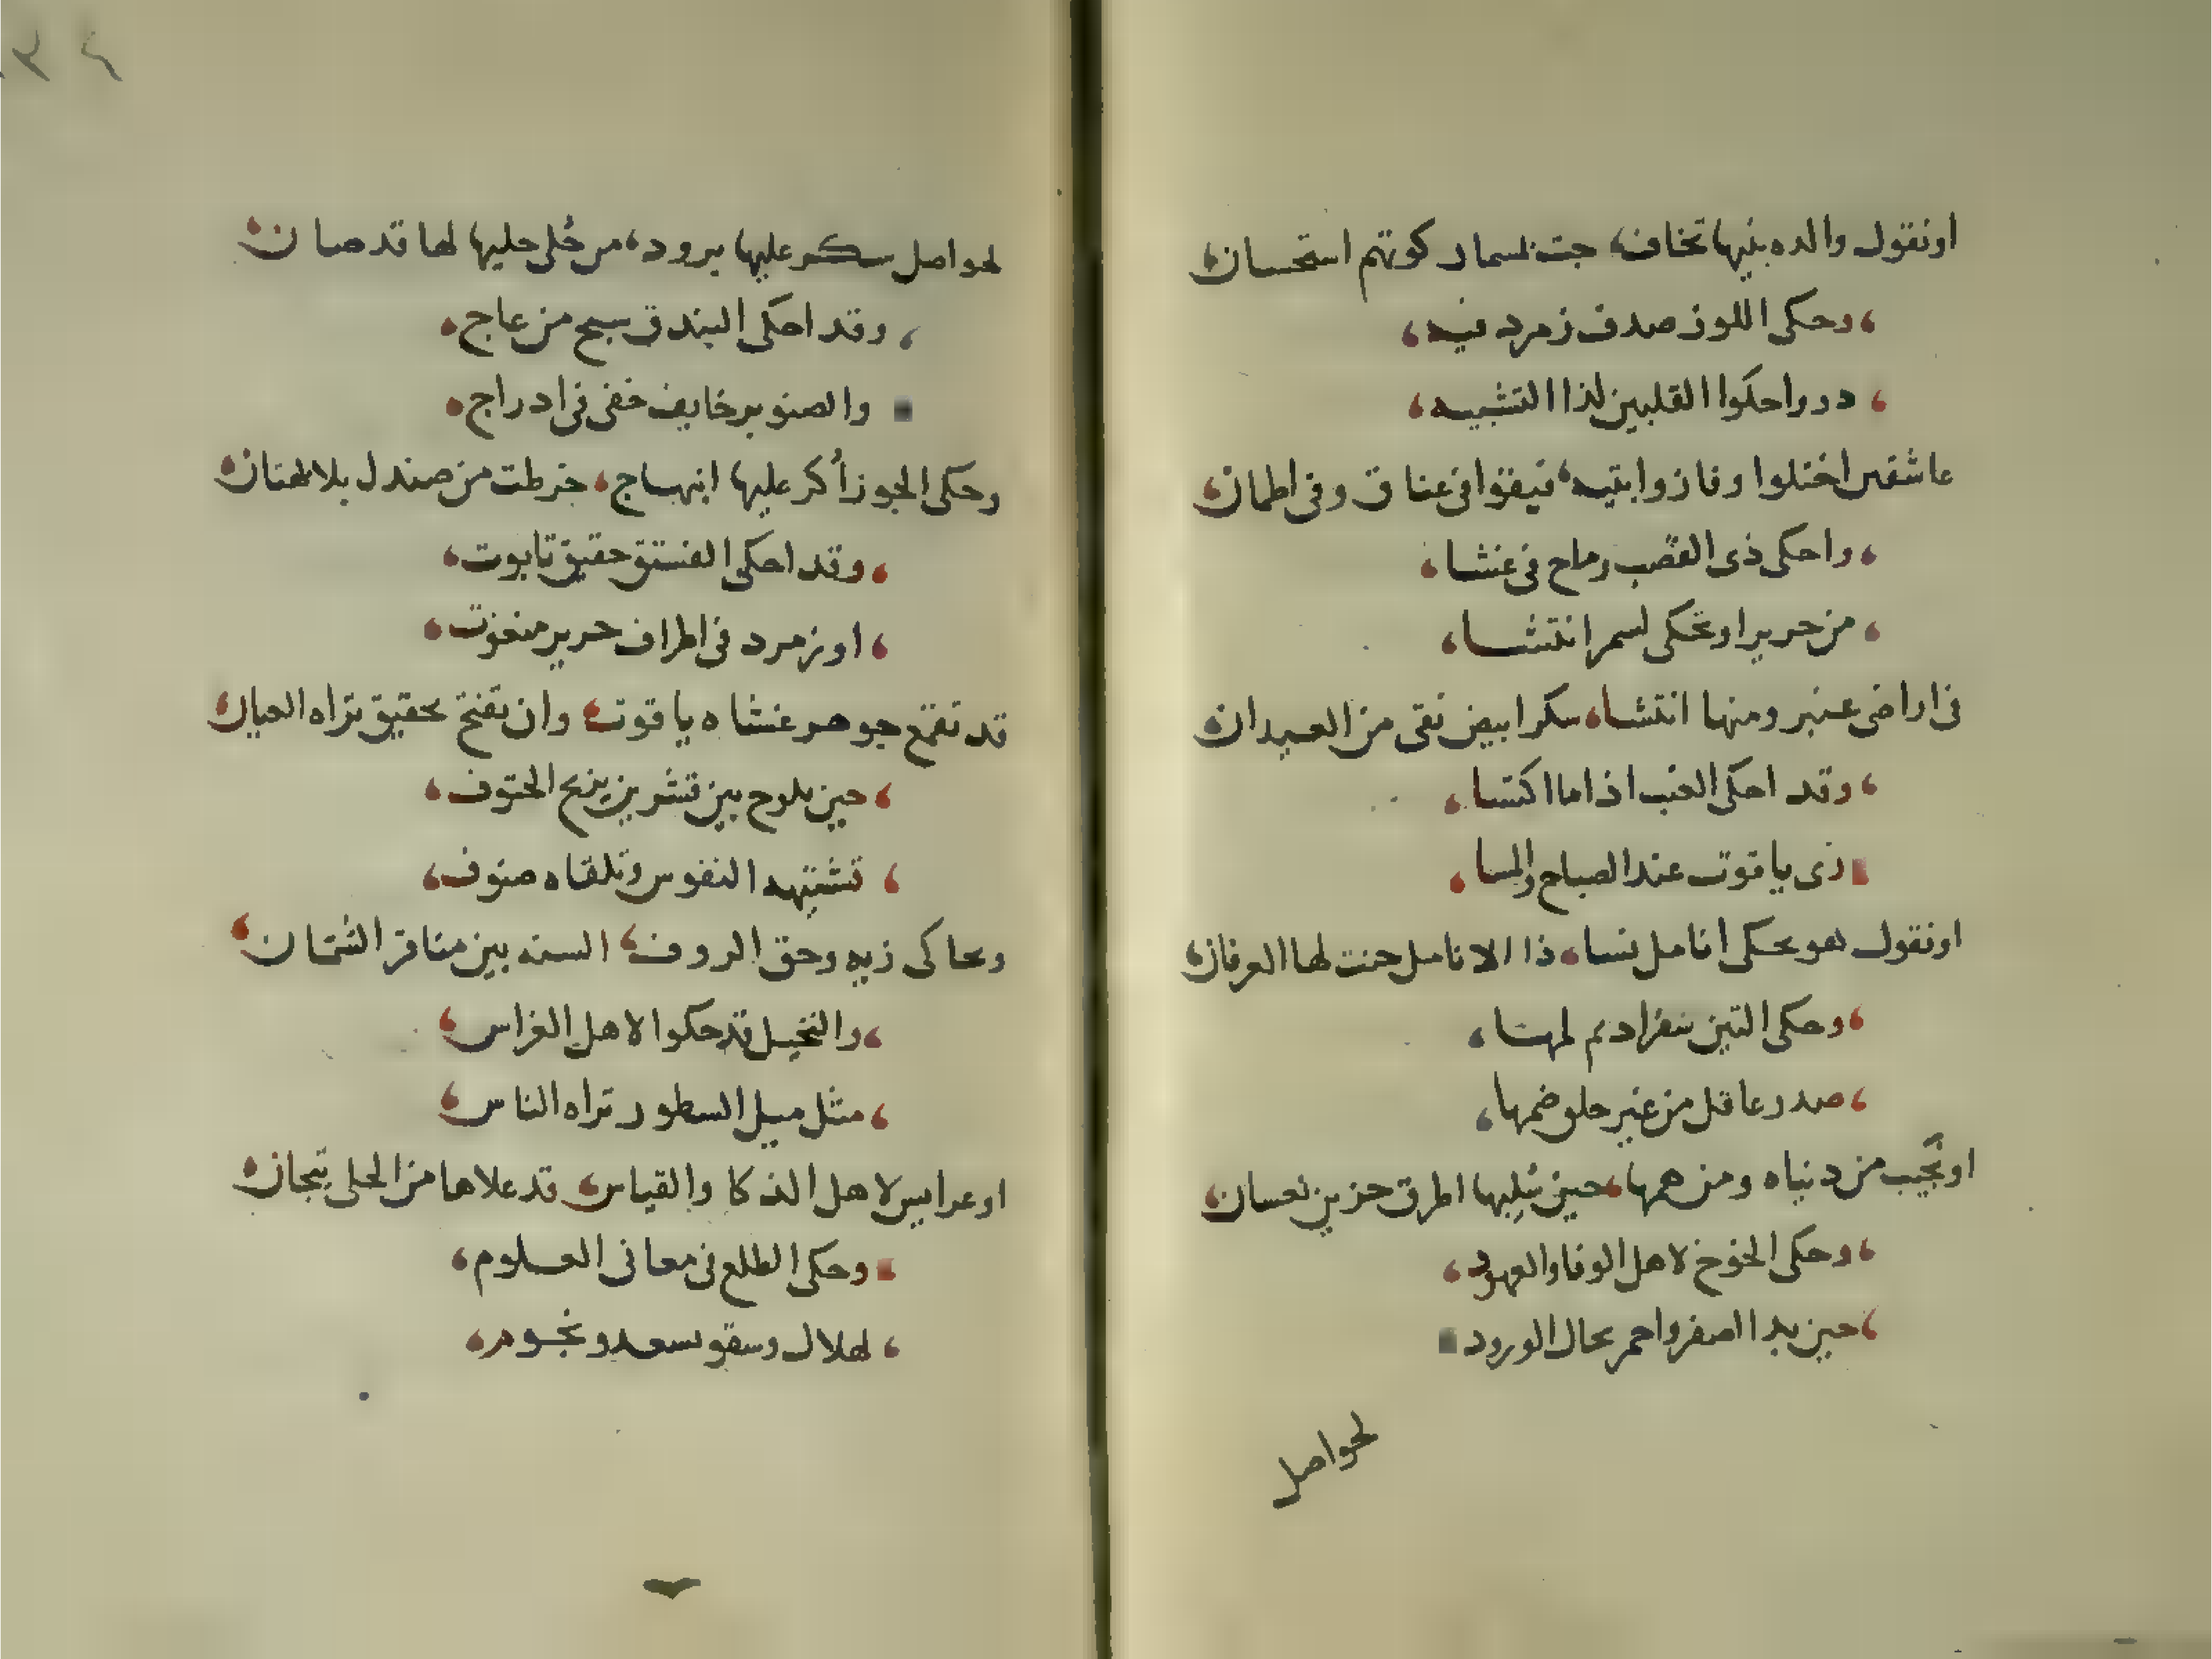 اونقول والده بنيها تخاف، جت لسمار كونهم استحسان
وحكى اللوز صدف زمرد فيه
درر واحكوا القلبين لذا التشبيه
عاشقين اختلوا وفازوا بتيه، فيفقوا فى عناق وفى اطمان
واحكى ذى القصب رماح فى غشا
من حرير او تحكى لسمر انتشا
فى اراضى عنبر ومنها انتشا، سكر ابيض نقى من العيدان
وقد احكى العنب اذا ما اكتسا
زى ياقوت عند الصباح والمسا
اونقول هو يحكى انامل نسا، ذا الانامل حنت لها العرفان
وحكى التين سفرا دم لمهنا
صدر عاقل من غير حلو ضمها
او نجيب من دنياه ومن همها، حين يليها اطرق حزين نعسان
وحكى الخوخ لاهل الوفا والعهود
حين بدا اصفر واحمر بحال الورود
لحواصل
لحواصل سكر عليها برود، من حلى حليها لها قد صان
وقد احكى البندق سبح من عاج
والصنوبر خايف خفى فى ادراج
وحكى الجوز أكر عليها ابتهاج، خرطت من صندل بلا
وقد احكى الفستق حقيق تابوت
او زمرد فى اطراف حرير منعوت
قد تقمع جوهر غشاه ياقوت، وان تفتح بحقيق تراه العيان
حين يلوح بين تشرين يزيح الحتوف
تشتهيه النفوس وتلقاه صنوف
وحاكى زيه وحق الروف، السنه بين مناقر الشمان
والنخيل قد حكوا لاهل الغراس
مثل ميل السطور تراه الناس
او عرايس لاهل الذكا والقياس، قد علاها من الحلى تيجان
وحكى الطلع فى معانى العلوم
لهلال وسقو بسعد ونجوم